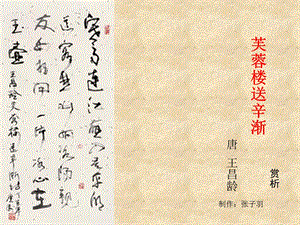 芙蓉楼送辛渐
唐 王昌龄
赏析
制作：张子羽
寒雨连江夜入吴平明
送客楚山孤洛阳亲
友如相问一片冰心在
玉壶